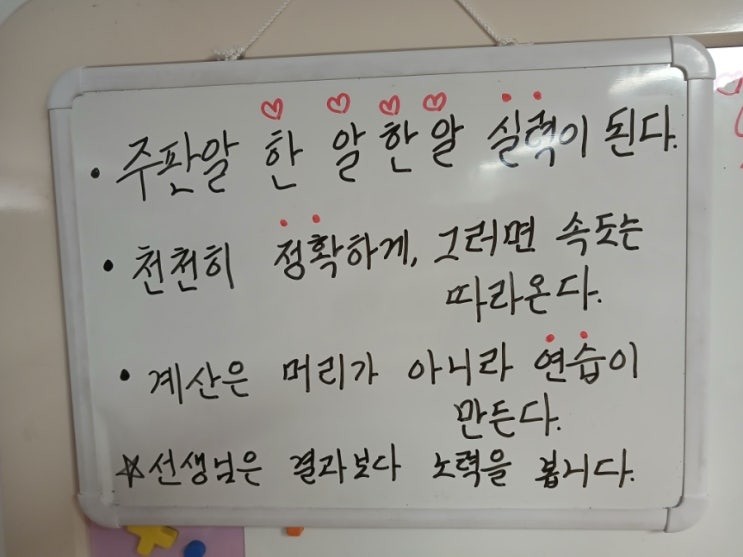 • 주판알 한 알 한 알 실력이 된다.
• 천천히 정확하게, 그러면 속도는
따라온다.
• 계산은 머리가 아니라 연습이
만든다.
☆선생님은 결과보다 노력을 봅니다.